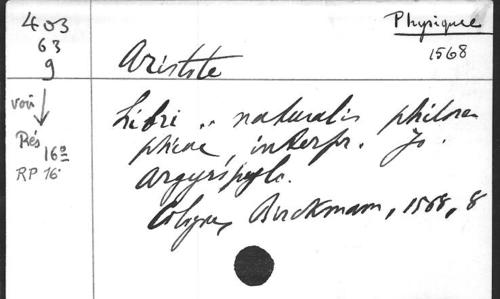 403
63
9
Physique
1568
Aristote
voir
Rés
16º
RP 16.
Libri .. naturalis philoso
phicae, interpr. Jo.
Argyropylo.
Cologne, Birckmann, 1568, 8